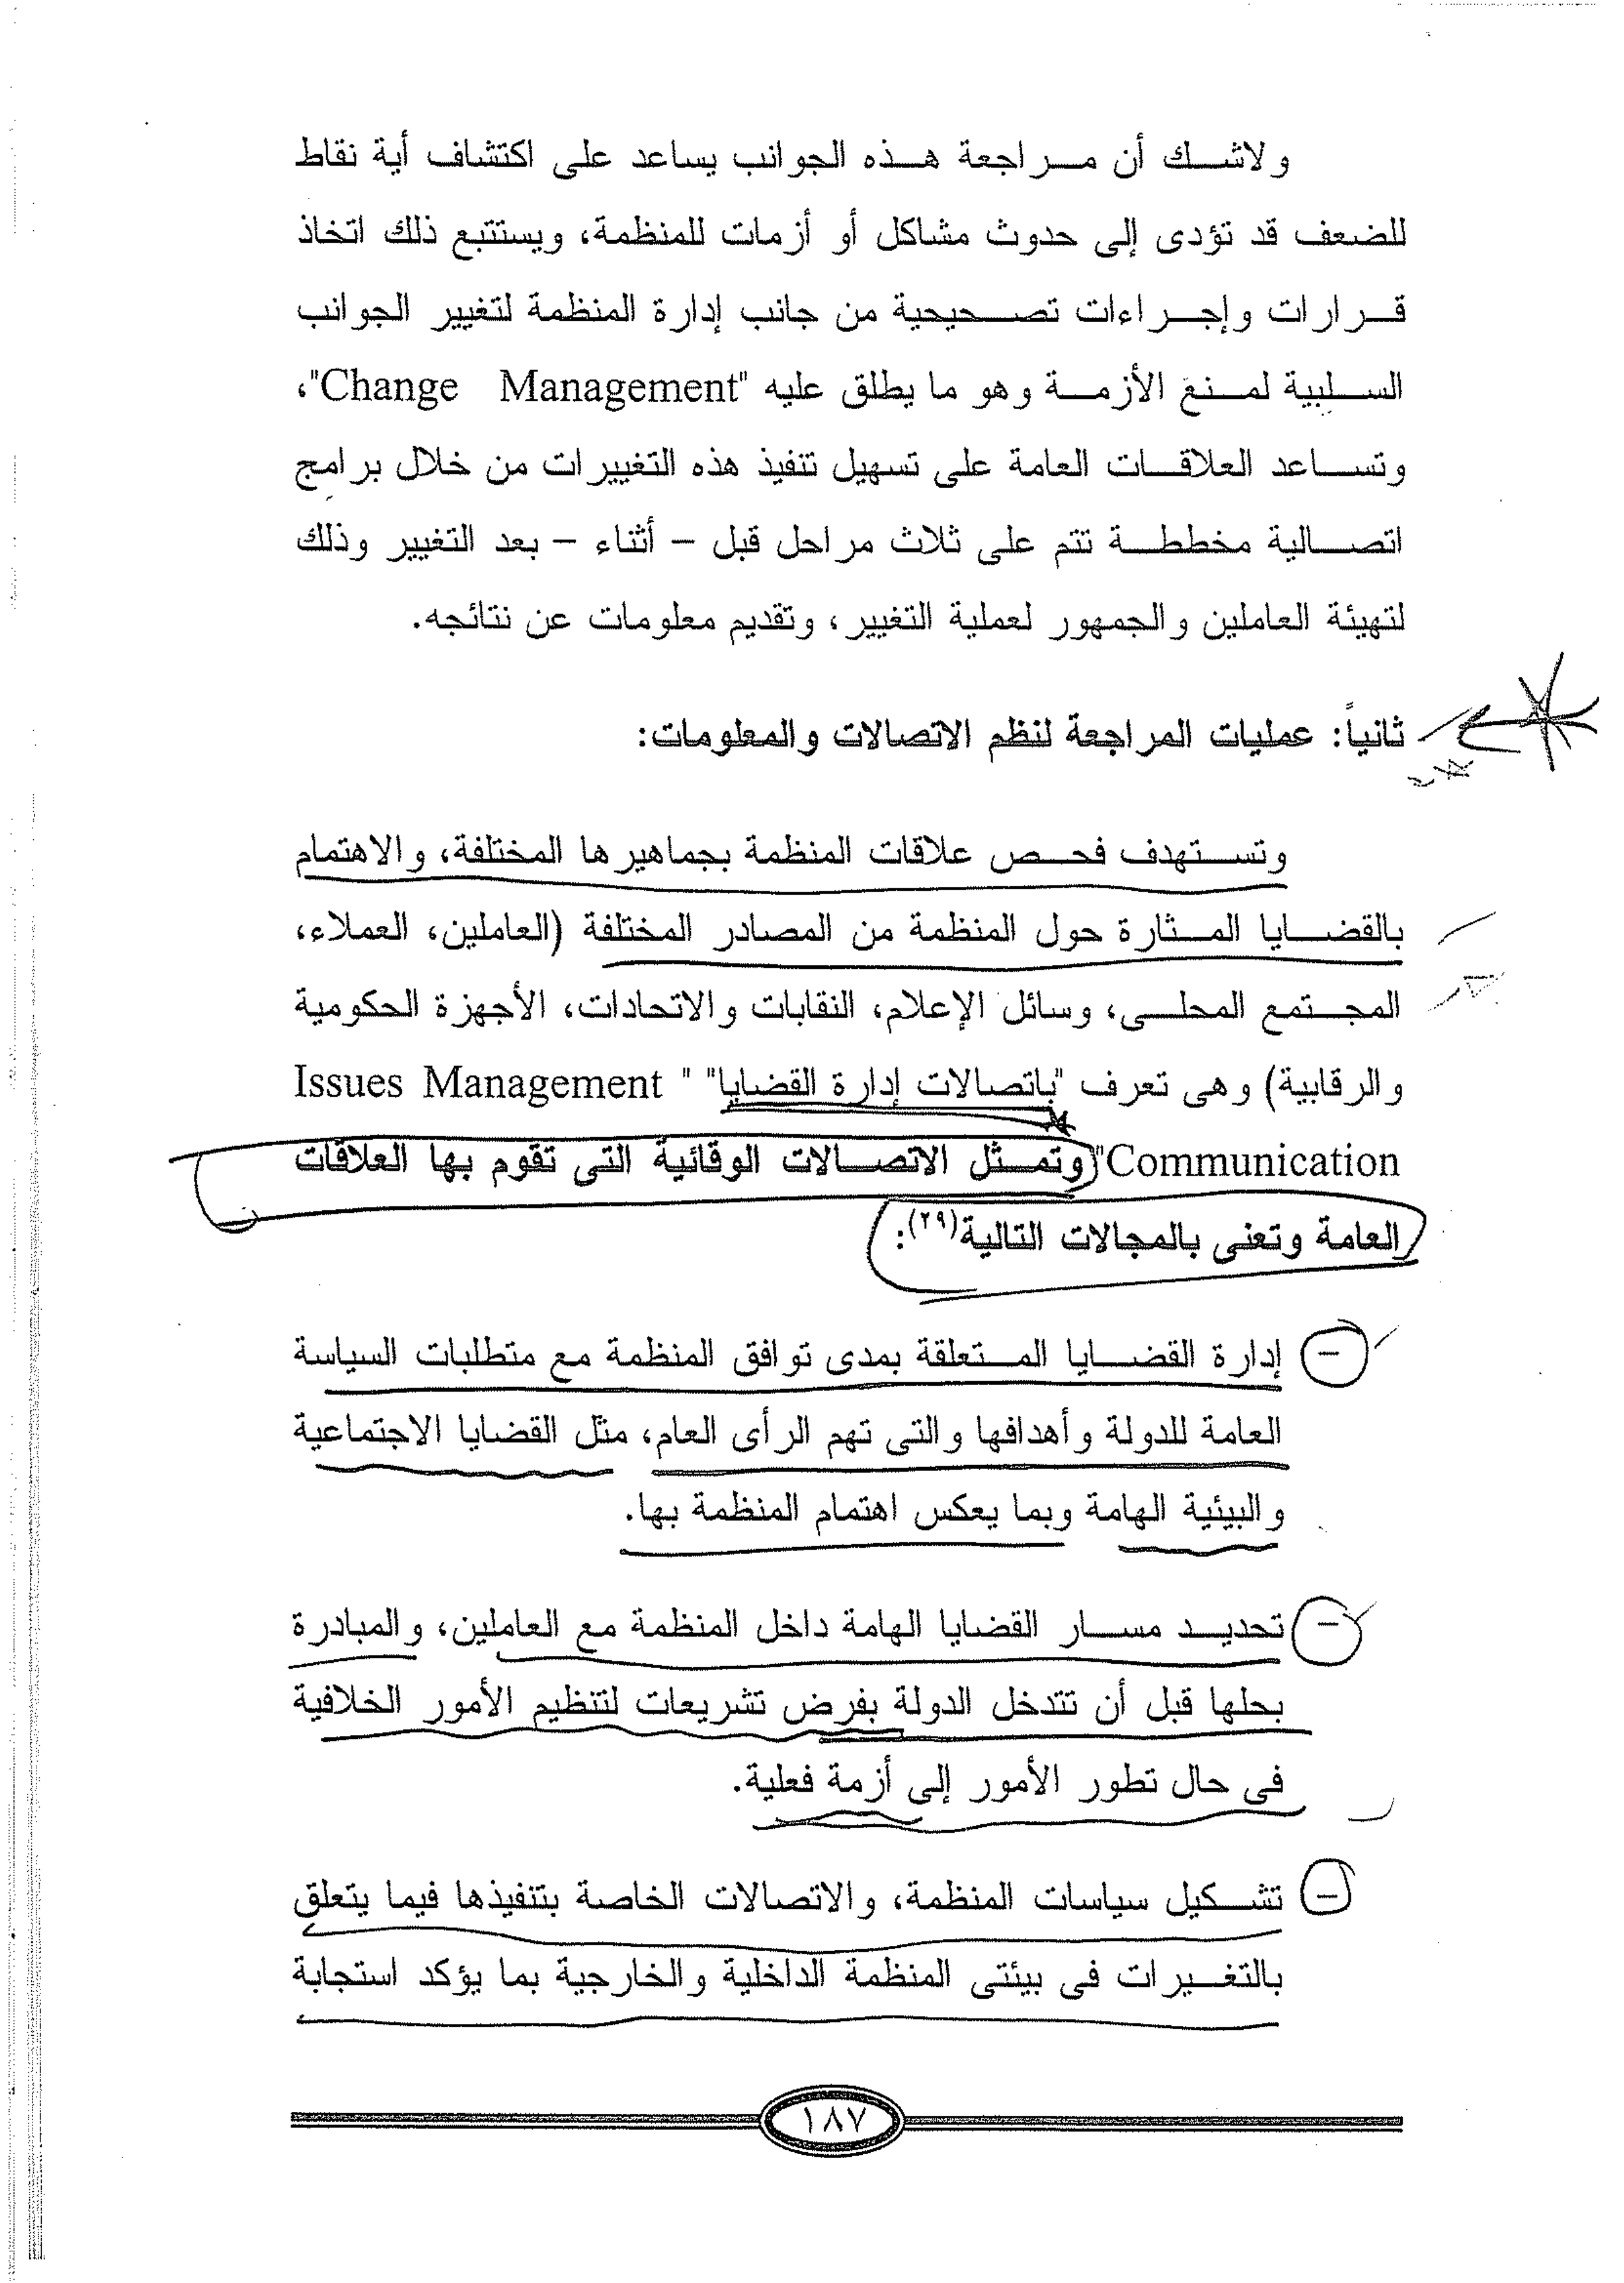 ولاشك أن مراجعة هذه الجوانب يساعد على اكتشاف أية نقاط
للضعف قد تؤدى إلى حدوث مشاكل أو أزمات للمنظمة، ويستتبع ذلك اتخاذ
قرارات وإجراءات تصحيحية من جانب إدارة المنظمة لتغيير الجوانب
السلبية لمنع الأزمة وهو ما يطلق عليه "Change Management"،
وتساعد العلاقات العامة على تسهيل تنفيذ هذه التغييرات من خلال برامج
اتصالية مخططة تتم على ثلاث مراحل قبل – أثناء – بعد التغيير وذلك
لتهيئة العاملين والجمهور لعملية التغيير، وتقديم معلومات عن نتائجه.
ثانياً: عمليات المراجعة لنظم الاتصالات والمعلومات:
وتستهدف فحص علاقات المنظمة بجماهيرها المختلفة، والاهتمام
بالقضايا المثارة حول المنظمة من المصادر المختلفة (العاملين، العملاء،
المجتمع المحلى، وسائل الإعلام، النقابات والاتحادات، الأجهزة الحكومية
والرقابية) وهى تعرف "باتصالات إدارة القضايا" "Issues Management
Communication" وتمثل الاتصالات الوقائية التى تقوم بها العلاقات
العامة وتعنى بالمجالات التالية(٢٩):
- إدارة القضايا المتعلقة بمدى توافق المنظمة مع متطلبات السياسة
العامة للدولة وأهدافها والتى تهم الرأى العام، مثل القضايا الاجتماعية
والبيئية الهامة وبما يعكس اهتمام المنظمة بها.
- تحديد مسار القضايا الهامة داخل المنظمة مع العاملين، والمبادرة
بحلها قبل أن تتدخل الدولة بفرض تشريعات لتنظيم الأمور الخلافية
فى حال تطور الأمور إلى أزمة فعلية.
- تشكيل سياسات المنظمة، والاتصالات الخاصة بتنفيذها فيما يتعلق
بالتغيرات فى بيئتى المنظمة الداخلية والخارجية بما يؤكد استجابة
١٨٧